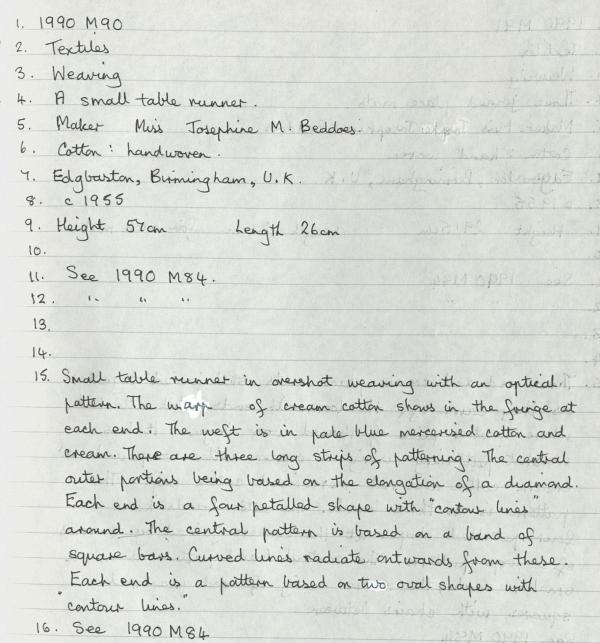 1. 1990 M90
2. Textiles
3. Weaving
4. A small table runner.
5. Maker Miss Josephine M. Beddoes.
6. Cotton : handwoven.
7. Edgbaston, Birmingham, U.K.
8. c 1955
9. Height 57cm Length 26cm
10.
11. See 1990 M84.
12. " " "
13.
14.
15. Small table runner in overshot weaving with an optical
pattern. The warp of cream cotton shows in the fringe at
each end. The weft is in pale blue mercerised cotton and
cream. There are three long strips of patterning. The central
outer portions being based on the elongation of a diamond.
Each end is a four petalled shape with "contour lines"
around. The central pattern is based on a band of
square bars. Curved lines radiate outwards from these.
Each end is a pattern based on two oval shapes with
"contour lines."
16. See 1990 M84